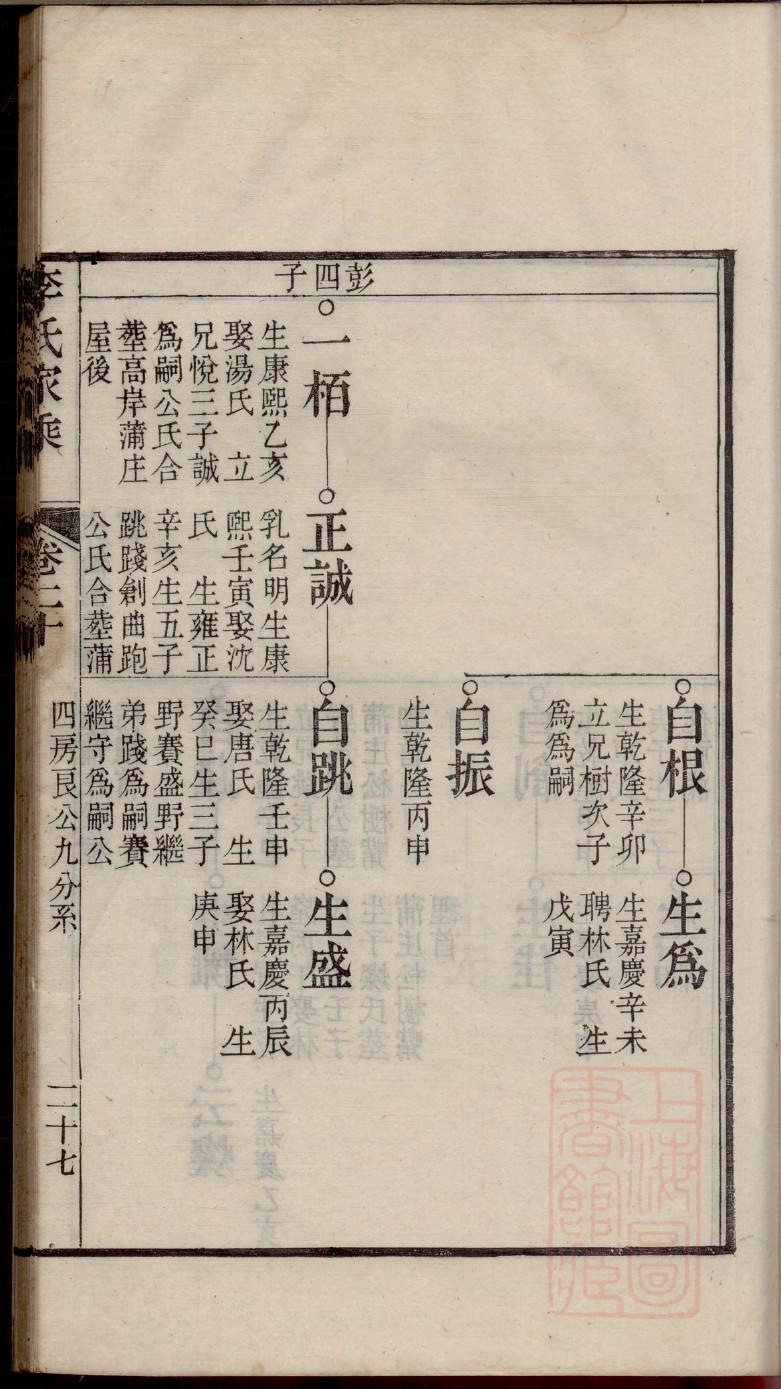 自根
生乾隆辛卯
立兄樹次子
爲爲嗣
生爲
生嘉慶辛未
聘林氏　生
戊寅
自振
生乾隆丙申
彭四子
一栢
生康熙乙亥
娶湯氏　立
兄悅三子誠
爲嗣公氏合
塟高岸蒲庄
屋後
正誠
乳名明生康
熙壬寅娶沈
氏　生雍正
辛亥生五子
跳踐創曲跑
公氏合塟蒲
自跳
生乾隆壬申
娶唐氏　生
癸巳生三子
野賽盛野繼
弟踐爲嗣賽
繼守爲嗣公
生盛
生嘉慶丙辰
娶林氏　生
庚申
李氏家乘
卷二十
四房良公九分系
二十七
上海圖
書館藏